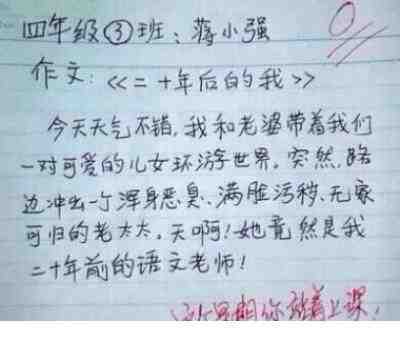 四年级③班：蒋小强
作文：<<二十年后的我>>
今天天气不错，我和老婆带着我们
一对可爱的儿女环游世界，突然，路
边冲出一个浑身恶臭、满脸污秽、无家
可归的老太太，天啊！她竟然是我
二十年前的语文老师！
这个星期你站着上课，